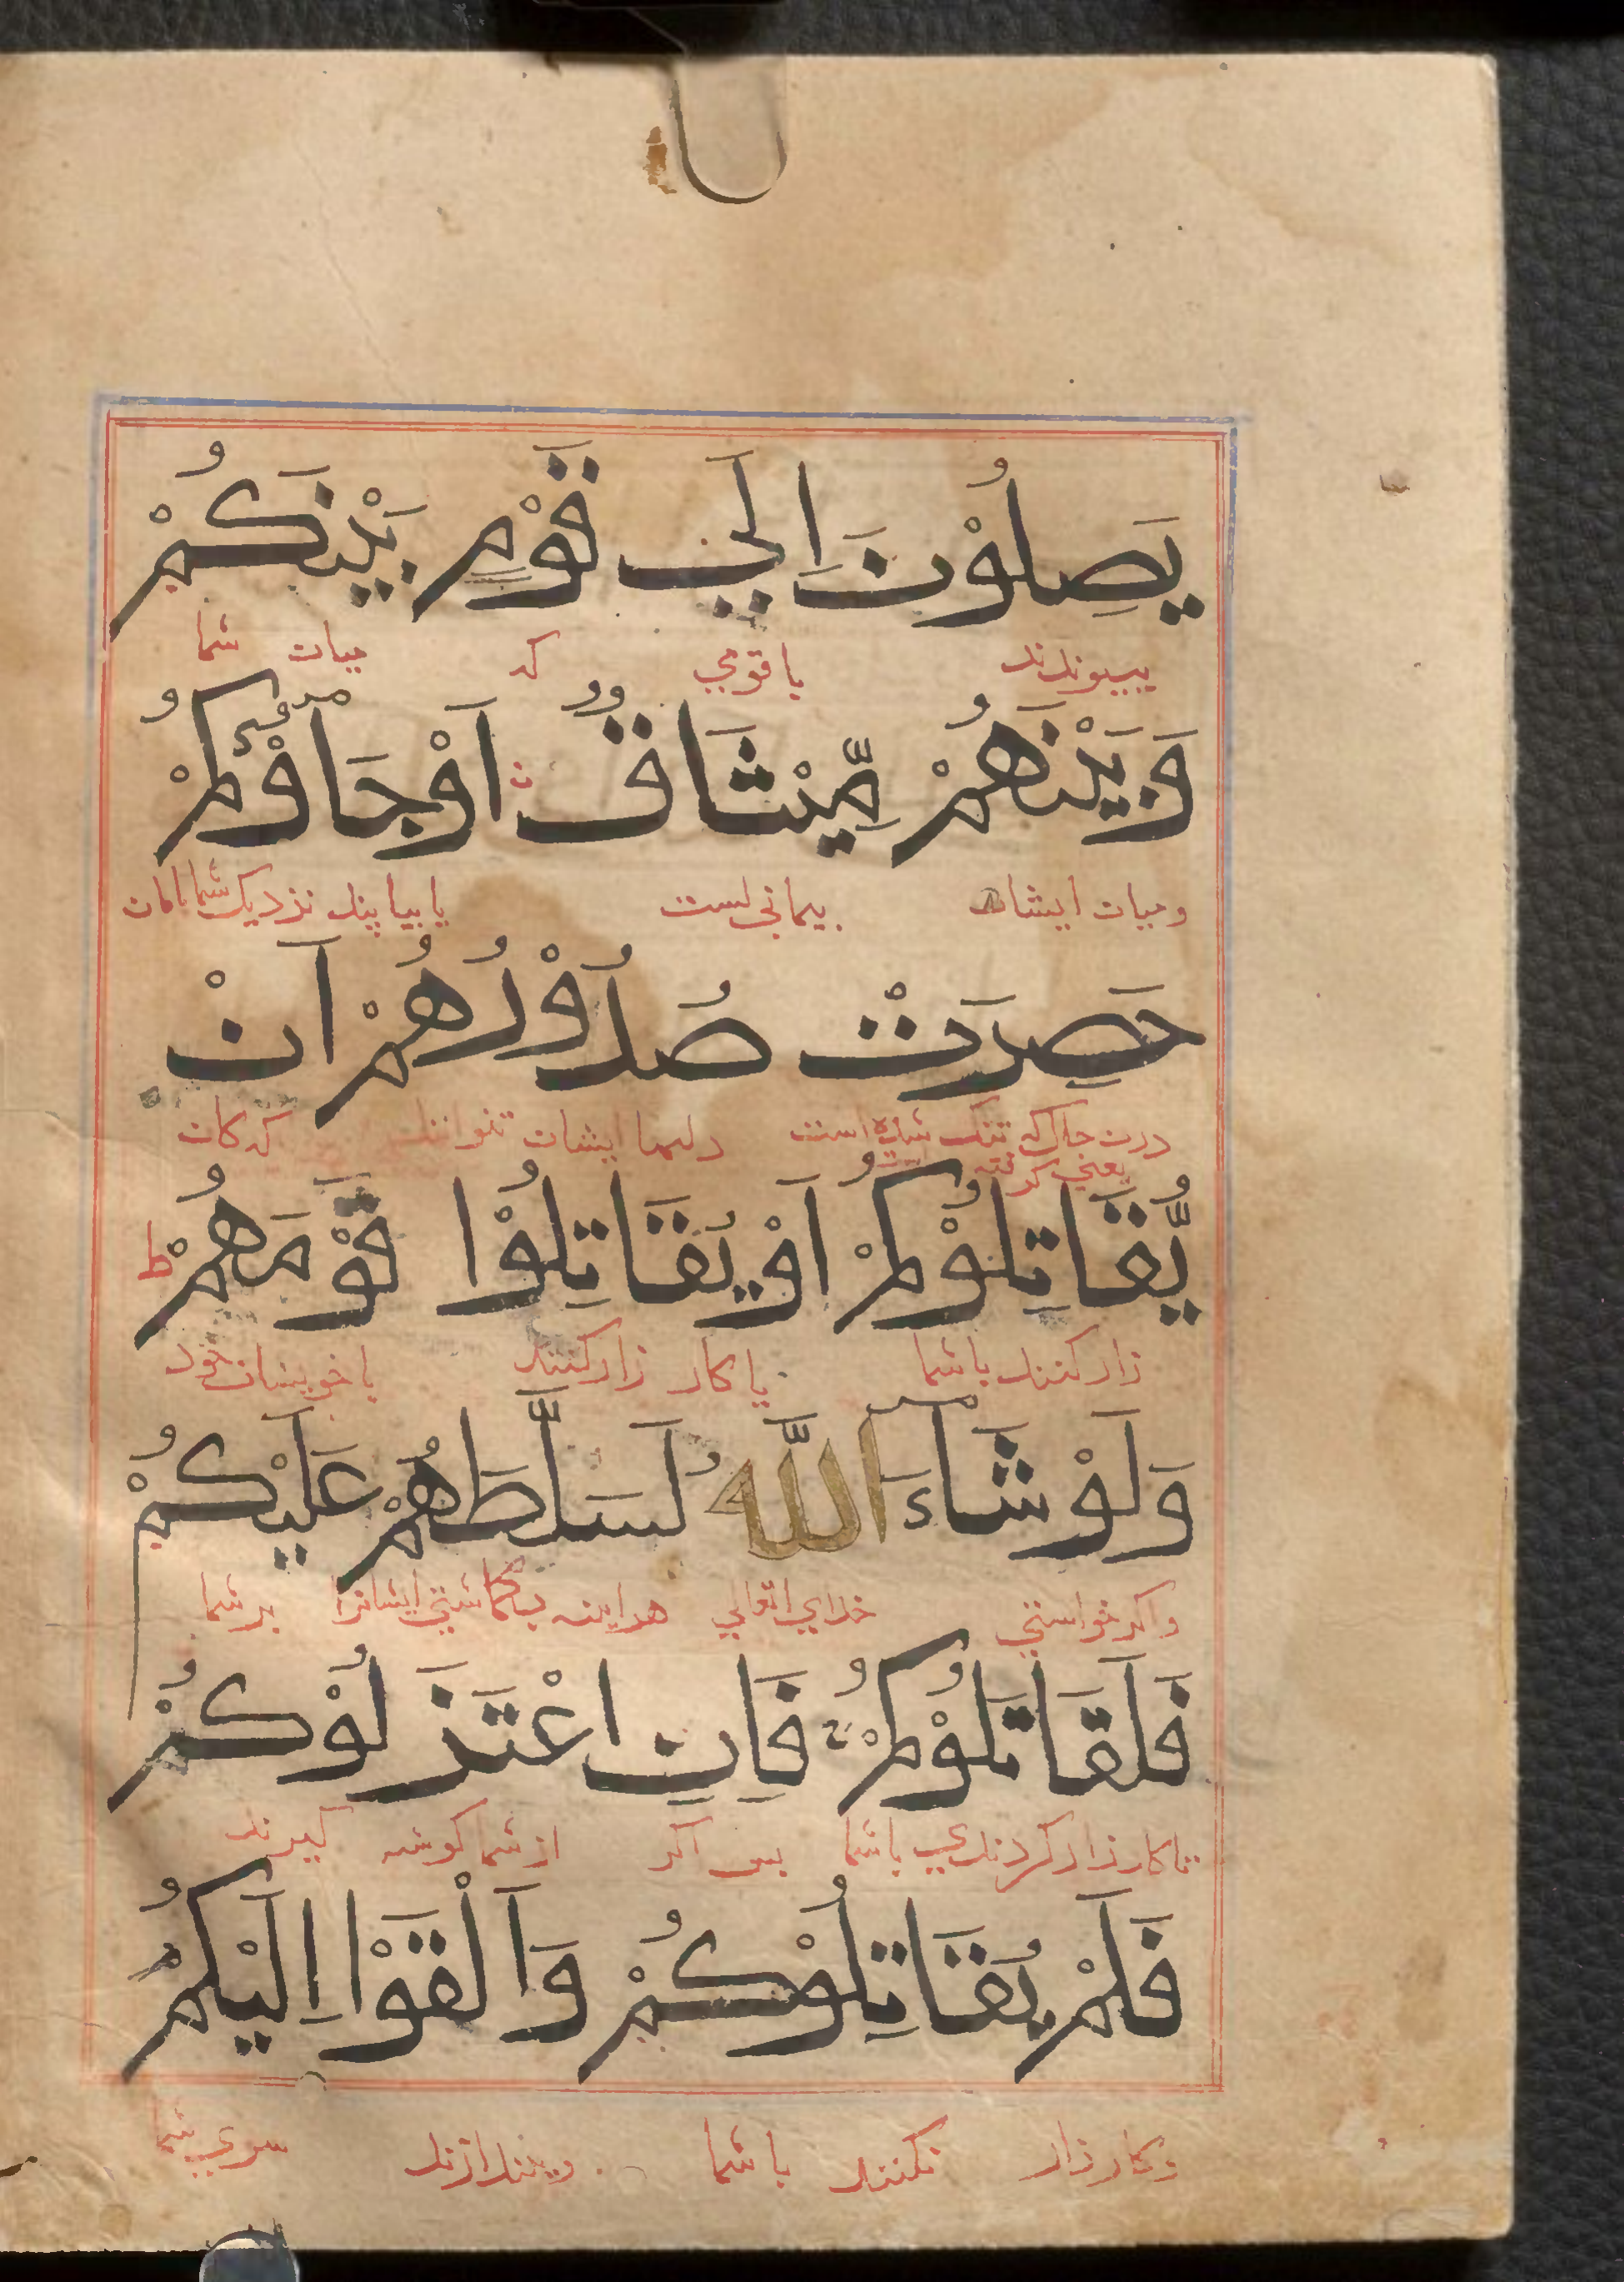 يَصِلُوْنَ اِلٰي قَوْمٍ بَيْنَكُمْ
بپيوندند با قومي كه ميان شما
وَبَيْنَهُمْ مِّيْثَاقٌ اَوْ جَآؤُكُمْ
وميان ايشان پيماني است يا بيايند نزديك شما
حَصِرَتْ صُدُوْرُهُمْ اَنْ
تنگ شده است دلها ايشان كه كان
يعني كرفته
يُّقَاتِلُوْكُمْ اَوْ يُقَاتِلُوْا قَوْمَهُمْ ط
زار كنند با شما يا كار زار كنند با خويشان خود
وَلَوْ شَآءَ اللّٰهُ لَسَلَّطَهُمْ عَلَيْكُمْ
واكر خواستي خداي تعالي هراينه بگماشتي ايشانرا بر شما
فَلَقَاتَلُوْكُمْ فَاِنِ اعْتَذَلُوْكُمْ
تا كار زار كردندي با شما پس اكر از شما كوشه كيرند
فَلَمْ يُقَاتِلُوْكُمْ وَاَلْقَوْا اِلَيْكُمُ
وكار زار نكنند با شما وبيندازند سوي شما